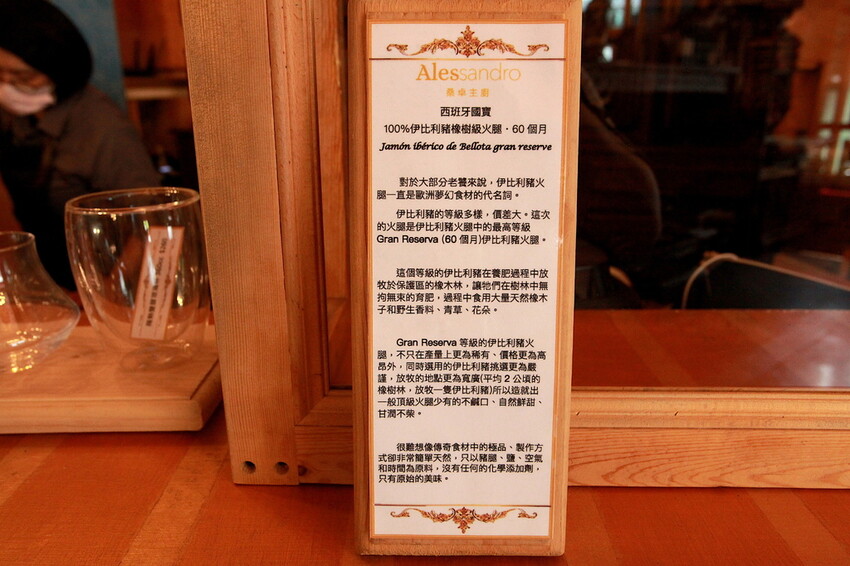 Alessandro
桑卓主廚
西班牙國寶
100%伊比利豬橡樹級火腿．60 個月
Jamón ibérico de Bellota gran reserve
對於大部分老饕來說，伊比利豬火
腿一直是歐洲夢幻食材的代名詞。
伊比利豬的等級多樣，價差大。這次
的火腿是伊比利豬火腿中的最高等級
Gran Reserva (60 個月)伊比利豬火腿。
這個等級的伊比利豬在養肥過程中放
牧於保護區的橡木林，讓牠們在樹林中無
拘無束的育肥，過程中食用大量天然橡木
子和野生香料、青草、花朵。
Gran Reserva 等級的伊比利豬火
腿，不只在產量上更為稀有、價格更為高
昂外，同時選用的伊比利豬挑選更為嚴
謹，放牧的地點更為寬廣(平均 2 公頃的
橡樹林，放牧一隻伊比利豬)所以造就出
一般頂級火腿少有的不鹹口、自然鮮甜、
甘潤不柴。
很難想像傳奇食材中的極品、製作方
式卻非常簡單天然，只以豬腿、鹽、空氣
和時間為原料，沒有任何的化學添加劑，
只有原始的美味。